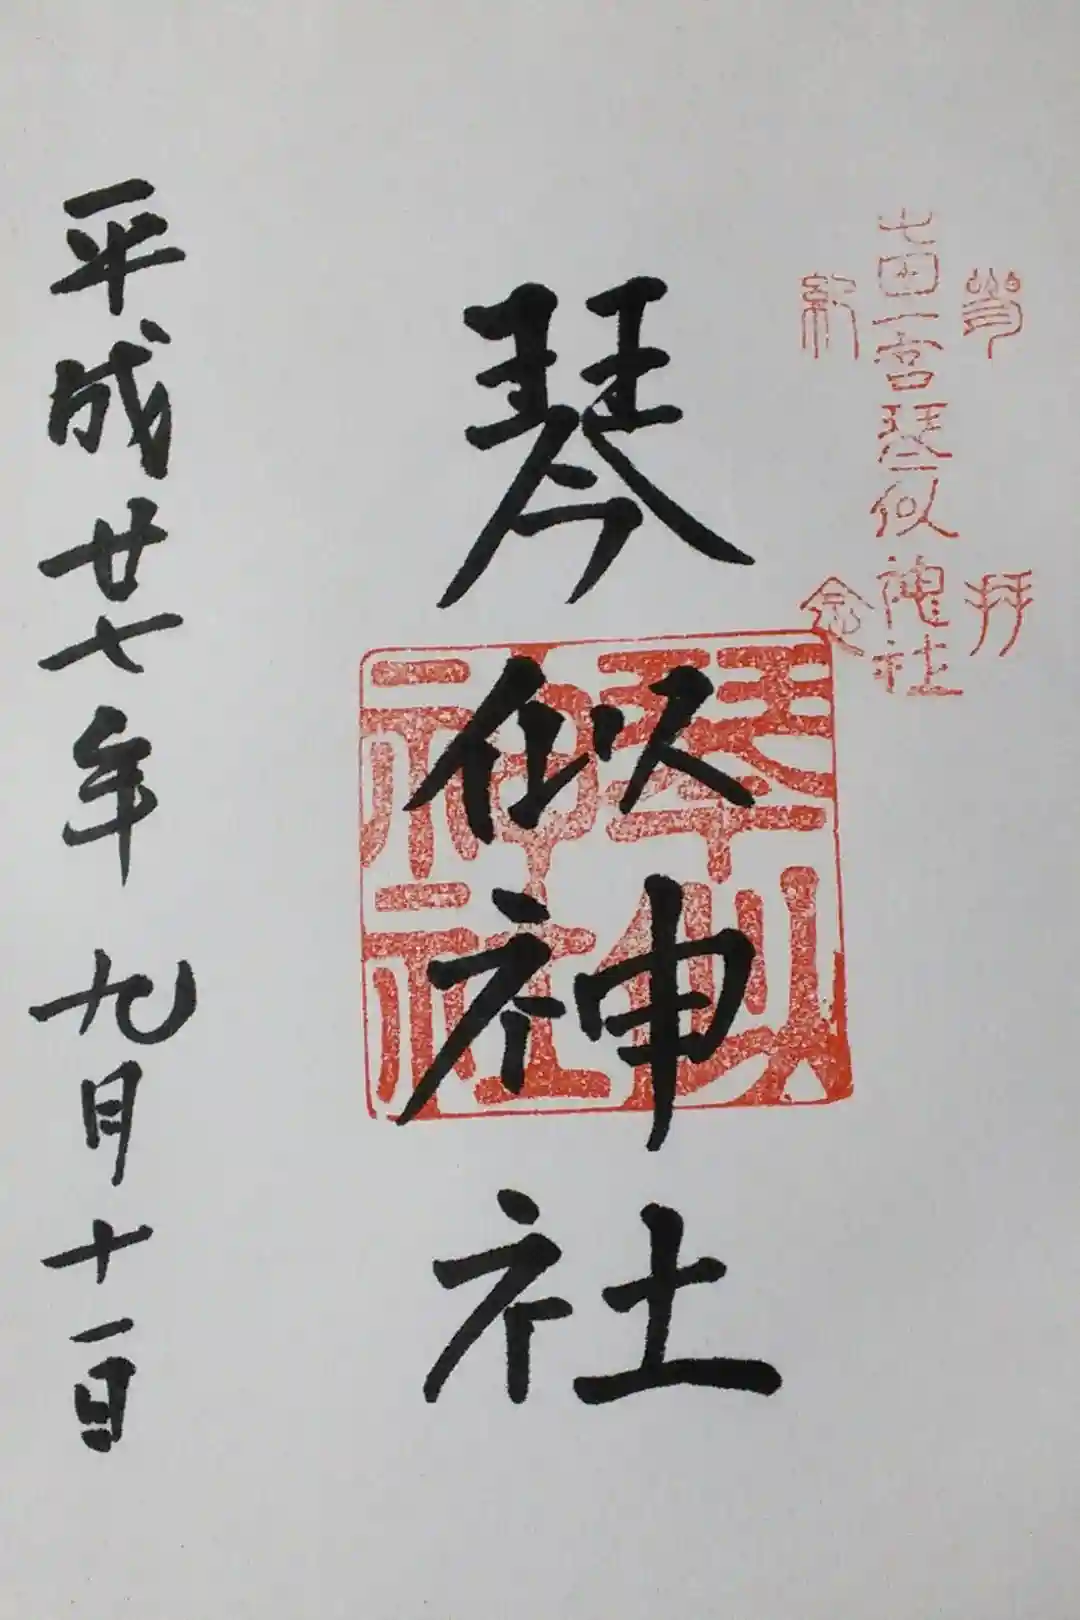 参拝
屯田一宮琴似神社
紀念
琴似神社
琴似
神社
平成廿七年九月十一日